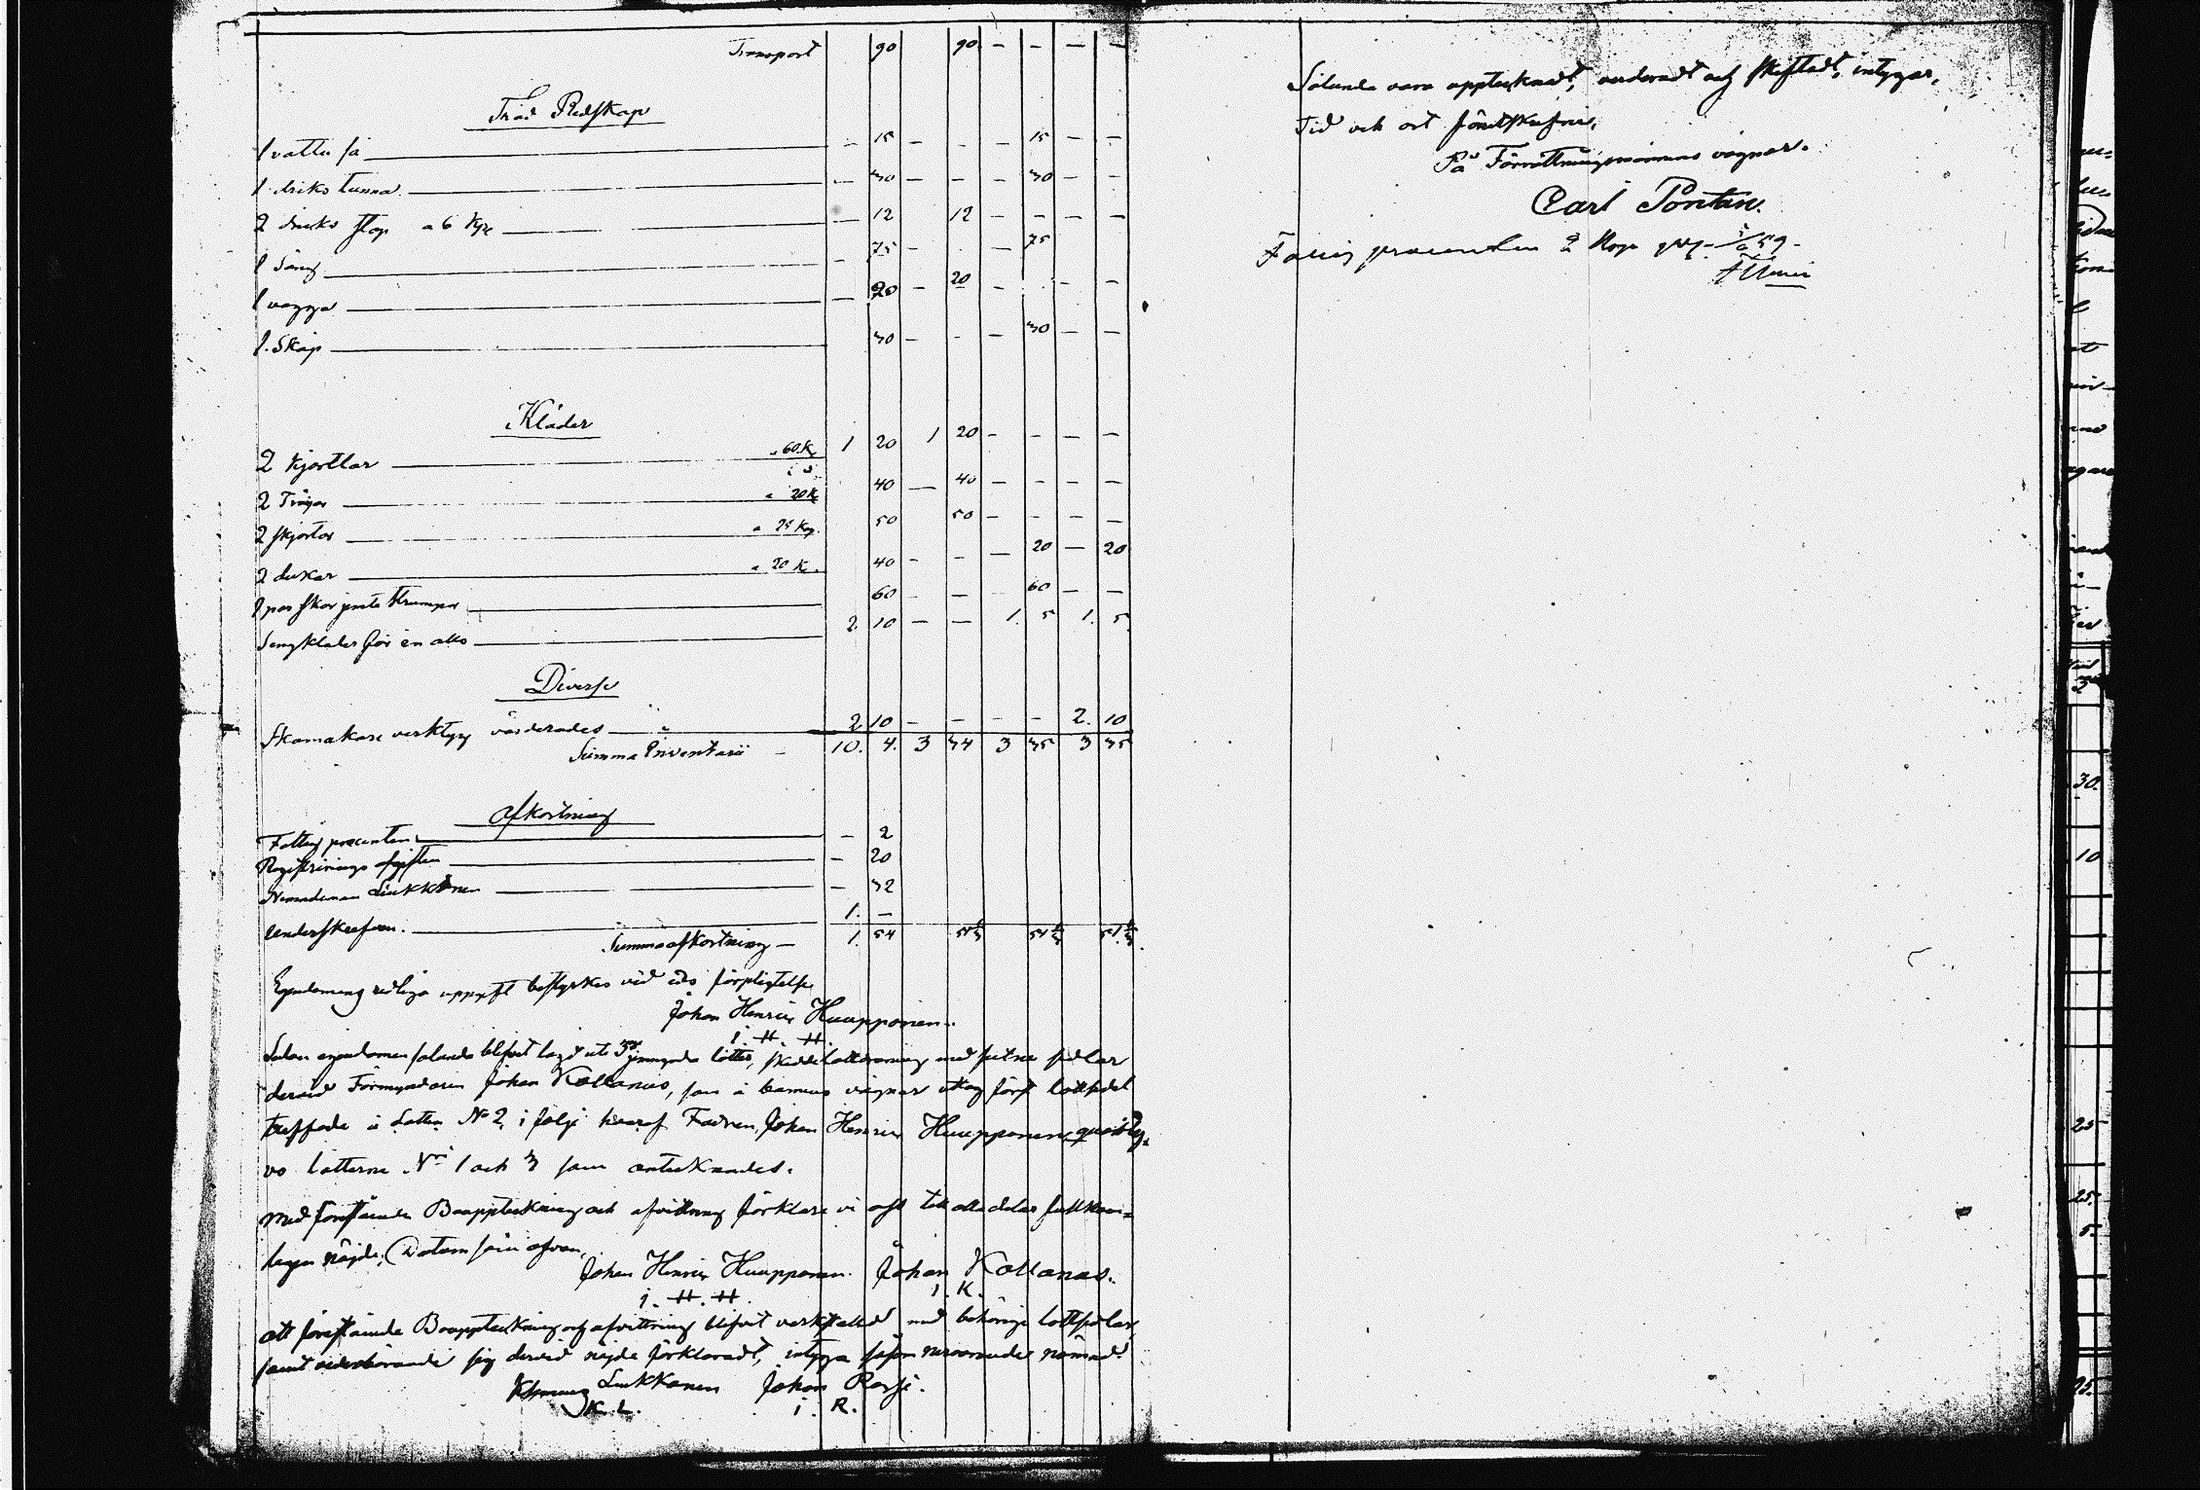 Transport 90 90 — — — —
Träd Redskap
1 vattu så — 15 — — — 15 — —
1 driks tunna — 30 — — — 30 — —
2 driks stop a 6 Kpk — 12 12 — — — —
1 Säng — 75 — — 75
1 vagga — 20 — 20 — — —
1 Skåp 30 — — — 30 — —
Kläder
2 Kjortlar a 60 K 1 20 1 20 — — — —
2 Tröjor a 20 K 40 — 40 — — — —
2 skjortor a 25 Kop. 50 50 — — — —
2 dukar a 20 K. 40 — — — 20 — 20
1 par skor jemte strumpor 60 — — 60 — —
Sengkläder för en alls 2 10 — — 1. 5 1. 5.
Diverse
Skomakare verktyg värderades 2 10 — — — — 2. 10
Summa Inventarii — 10. 4. 3 34 3 35 3 35
Afkortning
Fattig procenten — 2
Registrerings afgiften — 20
Nämndeman Liukkonen — 32
Underskrefven. 1. —
Summa afkortning — 1. 54 51 1/3 51 1/3 51 1/3
Egendomens redliga uppgift bestyrkes vid eds förpligtelse
Johan Henric Huupponen.
J. H. H.
Sedan egendomen sålunda blifvit lagd uti 3ne jemngoda lotter, skedde lottdragning med slutne sedlar
dervid Förmyndaren Johan Kollanus, som å barnens vägnar uttog först lottsedel
träffade å Lotten No 2, i följe hvaraf Fadren, Johan Henric Huupponen,
lotterne Nri 1 och 3 som antecknades.
Med förestående Bouppteckning och afvittring förklare vi oss till alla delar fullkom=
ligen nöjde, Datum som ofvan.
Johan Henric Huupponen. Johan Kollanus.
J. H. H. J. K.
Att förestående Bouppteckning och afvittring blifvit verkställd med behöriga lottsedlar,
samt vederbörande sig dervid nöjde förklaradt, intyga såsom närvarande nämnd.
Liukkonen Johan
K. L. J. R.
Sålunda vara upptecknadt, värderadt och skiftadt, intygar,
Tid och ort förutskrefne.
På Förrättningsmannens vägnar.
Carl Pontan.
Fattig procenten 2 Kop 59.